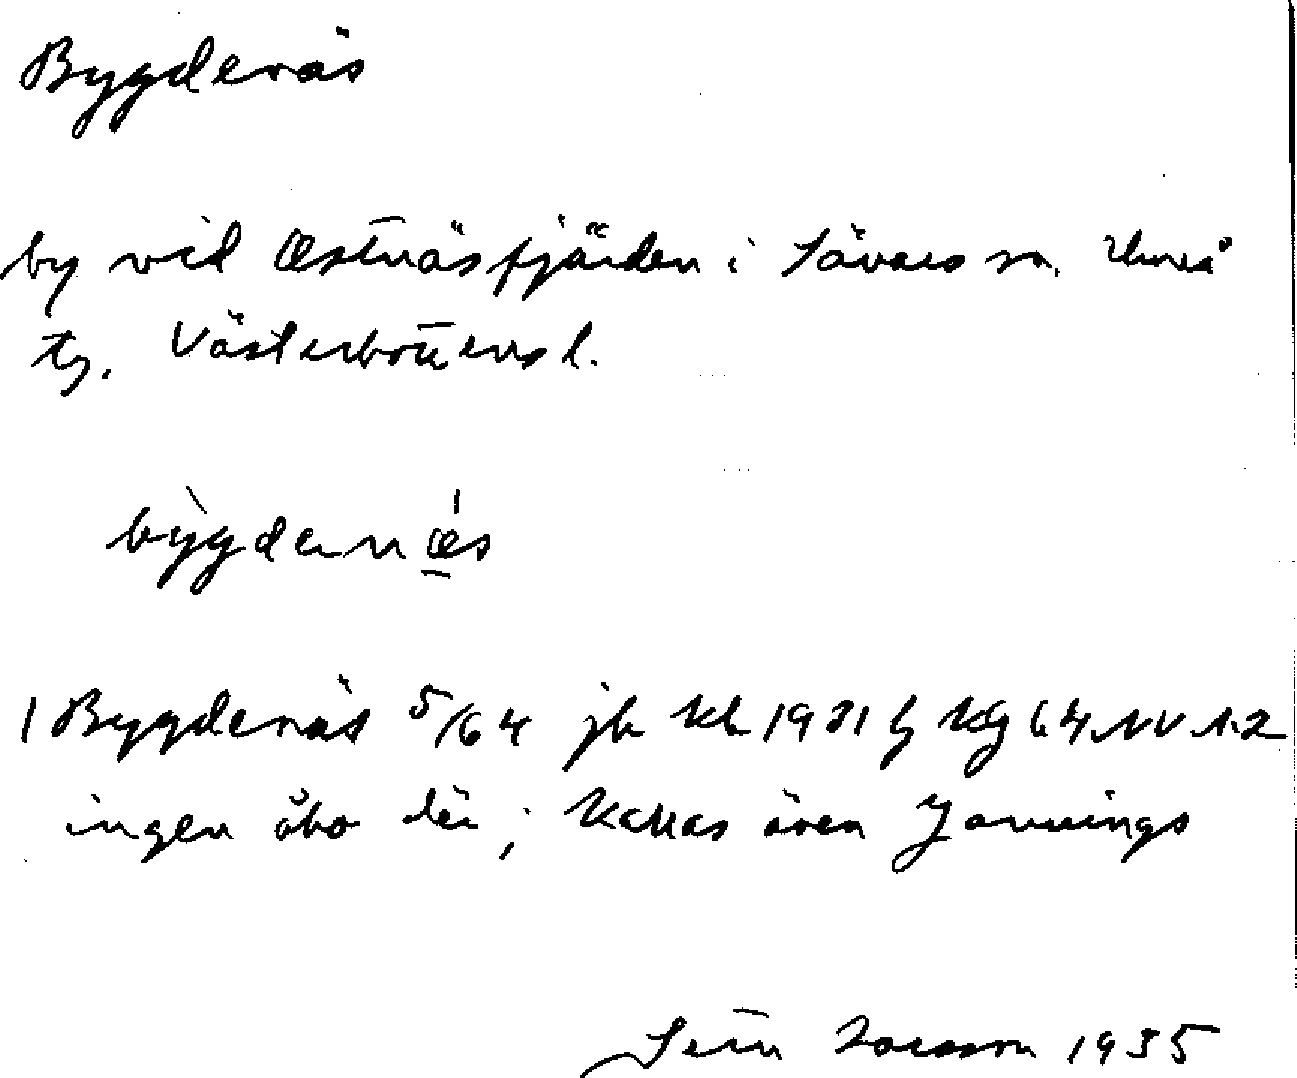 Bygdenäs
by vid Østnäsfjärden i Sävars sn. Umeå
tg. Västerbottens l.
bỳgdernǽs
1 Bygdenäs 5/64 jb 1931 kg 64 NV 1.2
ingen åbo där; kallas även Jannings
Larsson 1935